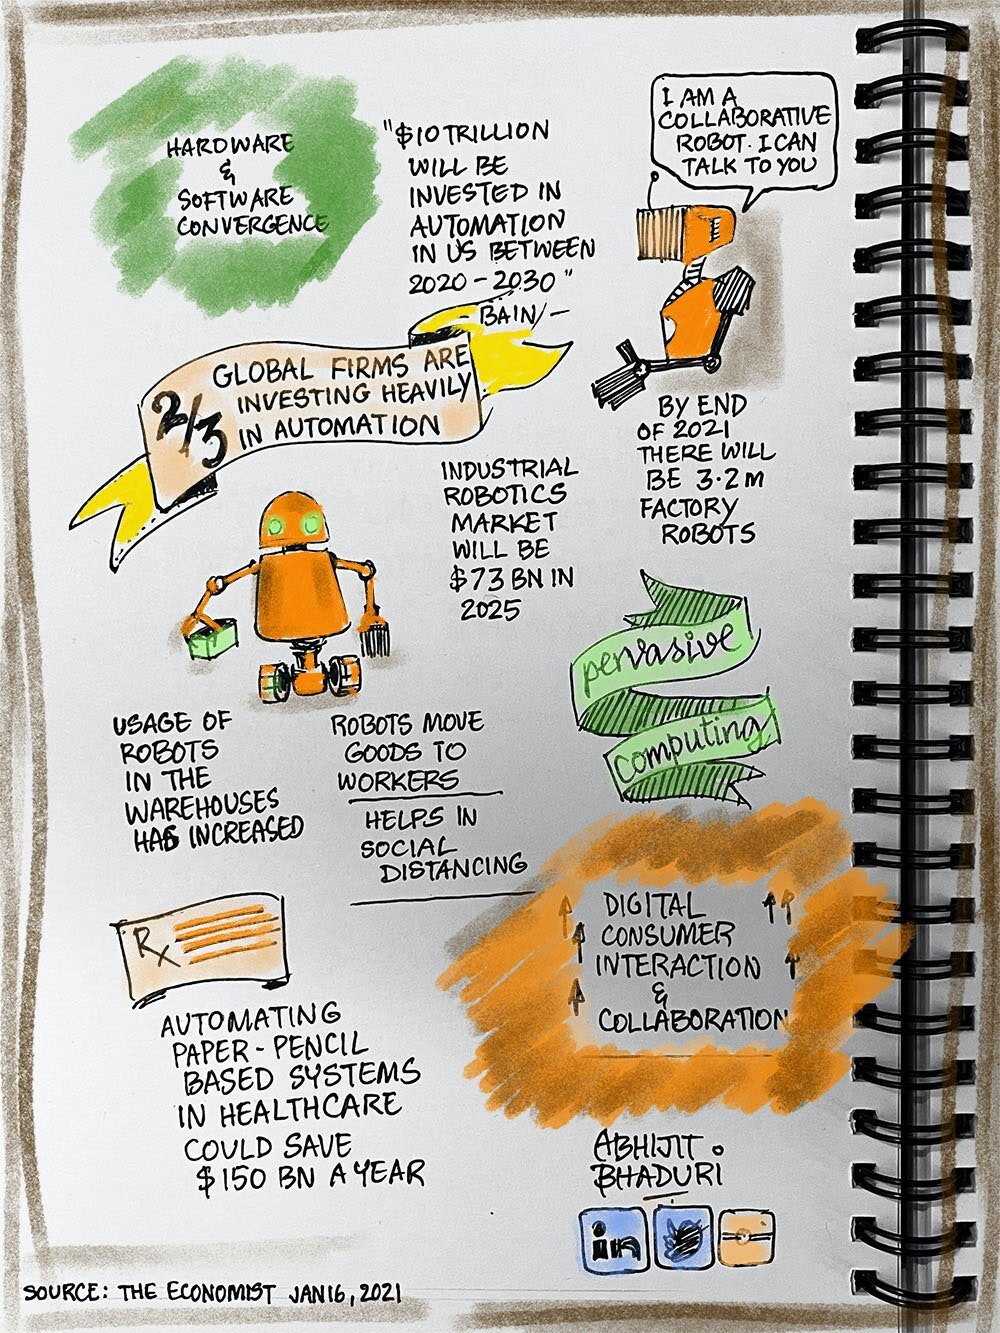 HARDWARE
&
SOFTWARE
CONVERGENCE
"$10 TRILLION
WILL BE
INVESTED IN
AUTOMATION
IN US BETWEEN
2020 - 2030"
BAIN/-
I AM A
COLLABORATIVE
ROBOT. I CAN
TALK TO YOU
2/3
GLOBAL FIRMS ARE
INVESTING HEAVILY
IN AUTOMATION
BY END
OF 2021
THERE WILL
BE 3.2m
FACTORY
ROBOTS
INDUSTRIAL
ROBOTICS
MARKET
WILL BE
$73 BN IN
2025
pervasive
computing
USAGE OF
ROBOTS
IN THE
WAREHOUSES
HAS INCREASED
ROBOTS MOVE
GOODS TO
WORKERS
HELPS IN
SOCIAL
DISTANCING
DIGITAL
CONSUMER
INTERACTION
&
COLLABORATION
Rx
AUTOMATING
PAPER-PENCIL
BASED SYSTEMS
IN HEALTHCARE
COULD SAVE
$150 BN A YEAR
ABHIJIT
BHADURI
in
SOURCE: THE ECONOMIST JAN 16, 2021